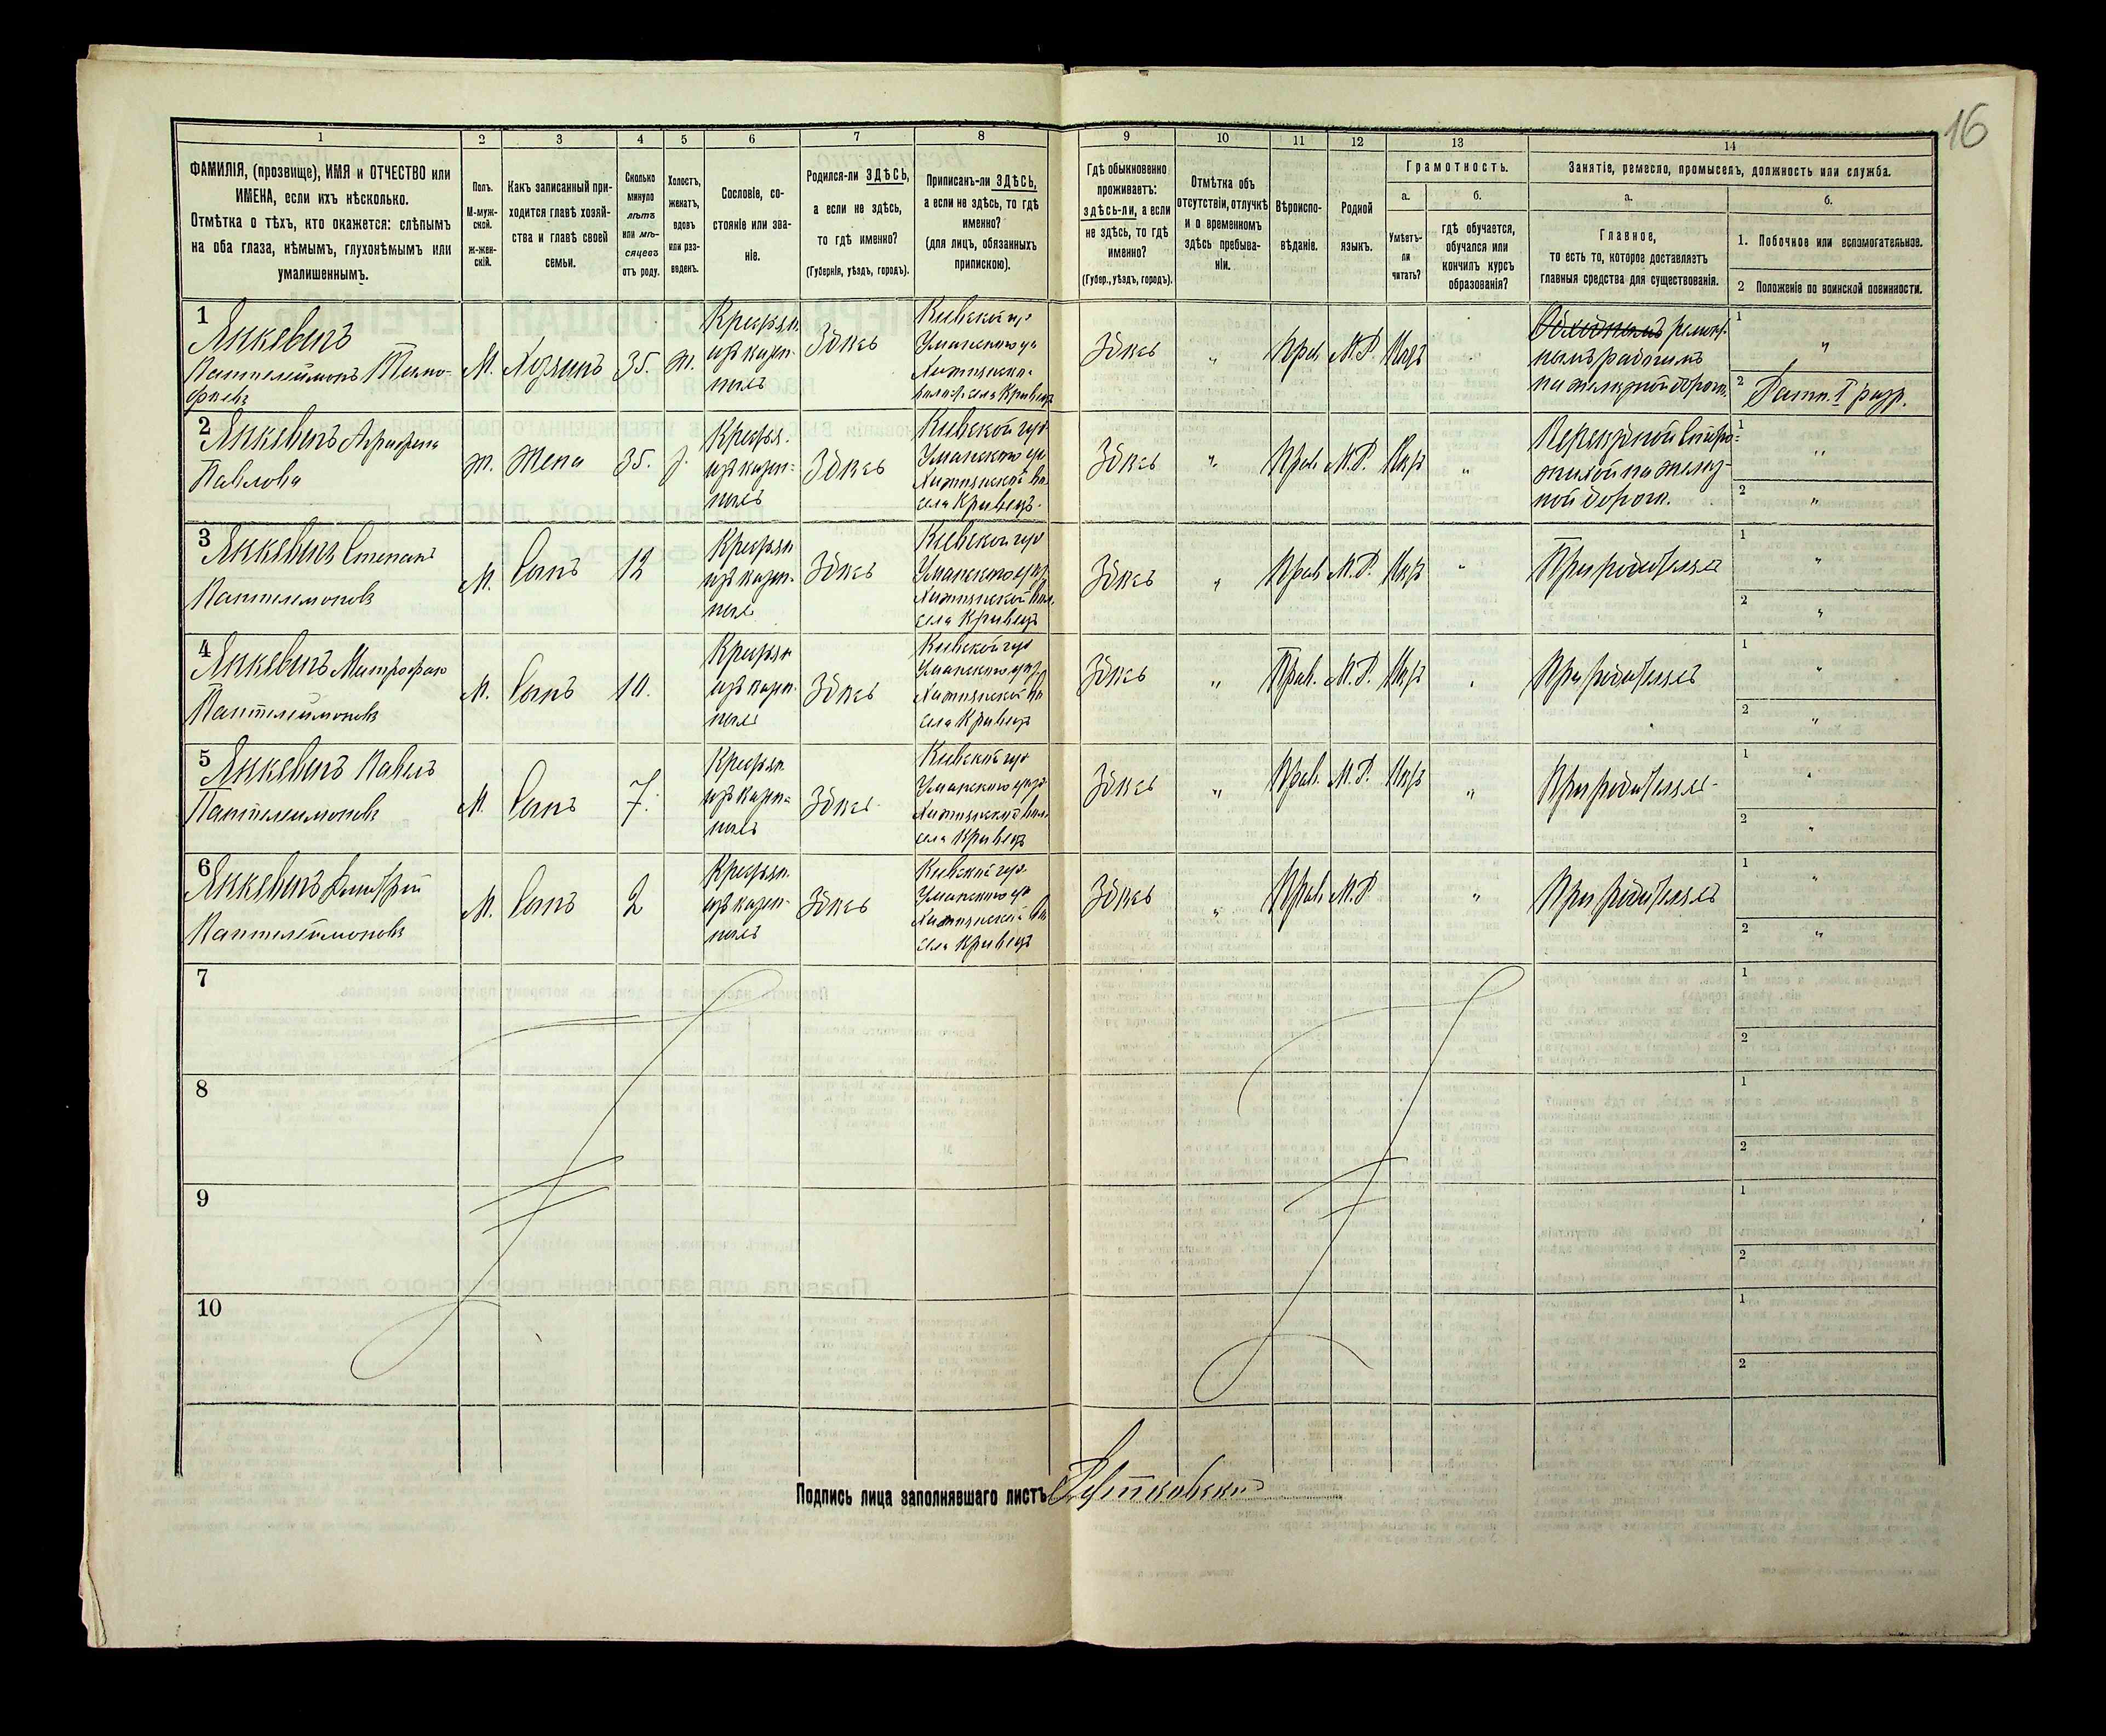 16
1
2
3
4
5
6
7
8
9
10
11
12
13
14
ФАМИЛІЯ, (прозвище), ИМЯ и ОТЧЕСТВО или
ИМЕНА, если ихъ нѣсколько.
Отмѣтка о тѣхъ, кто окажется: слѣпымъ
на оба глаза, нѣмымъ, глухонѣмымъ или
умалишеннымъ.
Полъ.
М-муж-
ской.
Ж-жен-
скій.
Какъ записанный при-
ходится главѣ хозяй-
ства и главѣ своей
семьи.
Сколько
минуло
лѣтъ
или мѣ-
сяцевъ
отъ роду.
Холостъ,
женатъ,
вдовъ
или раз-
веденъ.
Сословіе, со-
стояніе или зва-
ніе.
Родился-ли ЗДѢСЬ,
а если не здѣсь,
то гдѣ именно?
(Губернія, уѣздъ, городъ).
Приписанъ-ли ЗДѢСЬ,
а если не здѣсь, то гдѣ
именно?
(для лицъ, обязанныхъ
припискою).
Гдѣ обыкновенно
проживаетъ:
здѣсь-ли, а если
не здѣсь, то гдѣ
именно?
(Губер., уѣздъ, городъ).
Отмѣтка объ
отсутствіи, отлучкѣ
и о временномъ
здѣсь пребыва-
ніи.
Вѣроиспо-
вѣданіе.
Родной
языкъ.
Грамотность.
а.
Умѣетъ-
ли
читать?
б.
гдѣ обучается,
обучался или
кончилъ курсъ
образованія?
Занятіе, ремесло, промыселъ, должность или служба.
а.
Главное,
то есть то, которое доставляетъ
главныя средства для существованія.
б.
1. Побочное или вспомогательное.
2 Положеніе по воинской повинности.
1
Янкевичъ
Пантелеймонъ Тимо-
фіевъ
М.
Хозяинъ
35.
ж.
Крестьян
изъ казен-
ныхъ
Здѣсь
Кіевской гу
Уманского уѣ
села Кривецъ
Здѣсь
"
Прав
М.Р.
ремонт-
нымъ рабочимъ
на желѣзной дорогѣ.
1
"
2 Ратн. I разр.
2
Янкевичъ Агрифена
Павлова
ж.
Жена
35.
Крестья.
изъ казен-
ныхъ
Здѣсь
Кіевской губ
Уманского уѣ
села Кривецъ.
Здѣсь
"
Прав
М.Р.
"
Переѣздной сторо-
жихой на желѣз-
ной дорогѣ.
1
"
2
"
3
Янкевичъ Степанъ
Пантелеймоновъ
М.
Сынъ
12
Крестьян
изъ казен-
ныхъ
Здѣсь
Кіевской губ
Уманского уѣз
села Кривецъ
Здѣсь
"
Прав
М.Р.
"
При родителяхъ
1
"
2
"
4
Янкевичъ Митрофан
Пантелеймоновъ
М.
Сынъ
10.
Крестьян
изъ казен-
ныхъ
Здѣсь
Кіевской губ
Уманского уѣз
села Кривецъ
Здѣсь
"
Прав.
М.Р.
"
При родителяхъ
1
"
2
"
5
Янкевичъ Павелъ
Пантелеймоновъ
М.
Сынъ
7.
Крестьян
изъ казен-
ныхъ
Здѣсь
Кіевской губ
Уманского уѣзд
села Кривецъ
Здѣсь
"
Прав.
М.Р.
"
При родителяхъ
1
"
2
"
6
Янкевичъ Дмитрій
Пантелеймоновъ
М.
Сынъ
2
Крестьян
изъ казен-
ныхъ
Здѣсь
Кіевской губ
Уманского уѣ
села Кривецъ
Здѣсь
"
Прав.
М.Р
"
При родителяхъ
1
"
2
"
7
1
2
8
1
2
9
1
2
10
1
2
Подпись лица заполнявшаго листъ